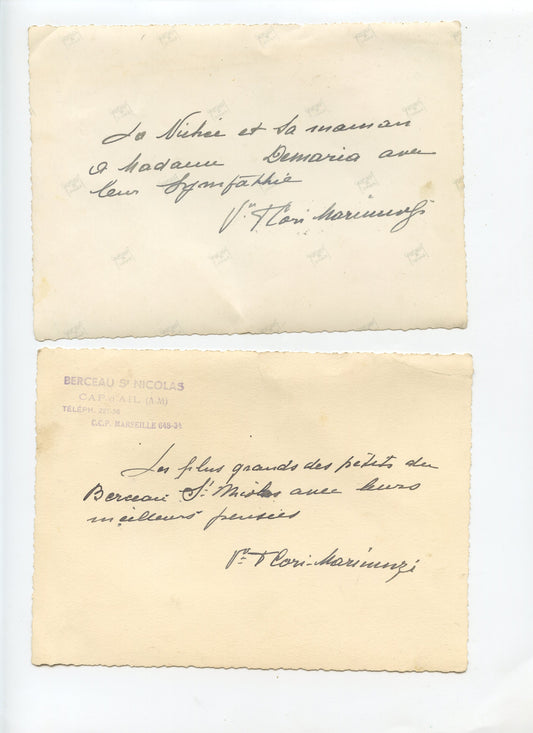 La Nichée et sa maman
à Madame Demaria avec
leur sympathie
Vve Flori-Marimozzi
BERCEAU St NICOLAS
CAP d'AIL (A.M)
TÉLÉPH. 221-56
C.C.P. MARSEILLE 648-34
Les plus grands des petits du
Berceau St Nicolas avec leurs
meilleurs pensées